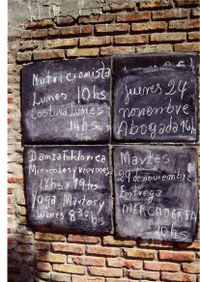 Nutricionista
Lunes 10hs
Costura Lunes
14hs
Jueves 24
noviembre
Abogada 16hs
Danza folklorica
Miercoles y viernes
18hs a 19hs
Yoga Martes y
Jueves 8:30hs
Martes
29 de noviembre
Entrega
MERCADERIA
10hs